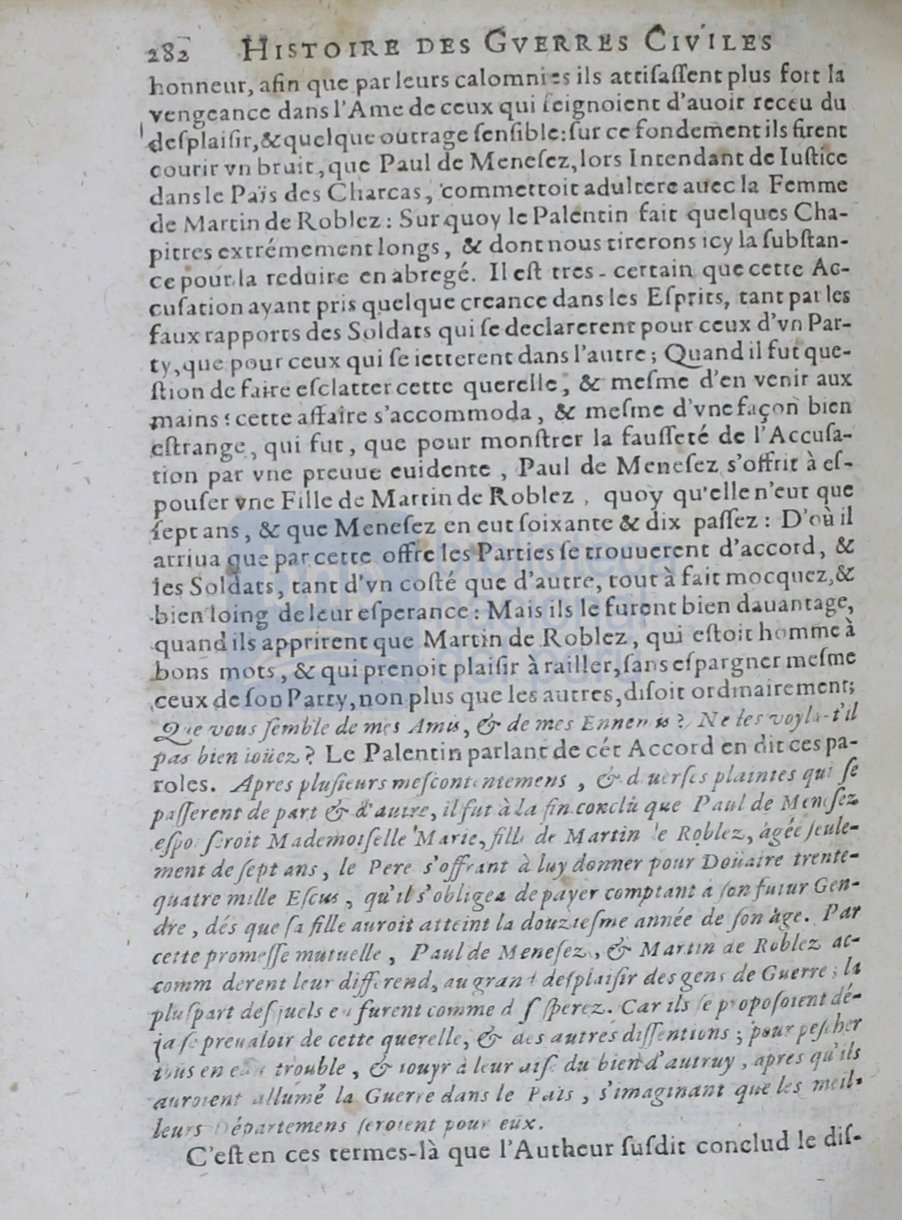 282 HISTOIRE DES GVERRES CIVILES
honneur, afin que par leurs calomnies ils attisaſſent plus fort la
vengeance dans l'Ame de ceux qui feignoient d'auoir receu du
deſplaiſir, & quelque outrage ſenſible: ſur ce fondement ils firent
courir vn bruit, que Paul de Meneſez, lors Intendant de Iuſtice
dans le Païs des Charcas, commettoit adultere auec la Femme
de Martin de Roblez: Sur quoy le Palentin fait quelques Cha-
pitres extrémement longs, & dont nous tirerons icy la ſubſtan-
ce pour la reduire en abregé. Il eſt tres-certain que cette Ac-
cuſation ayant pris quelque creance dans les Eſprits, tant par les
faux rapports des Soldats qui ſe declarerent pour ceux d'vn Par-
ty, que pour ceux qui ſe ietterent dans l'autre; Quand il fut que-
ſtion de faire eſclatter cette querelle, & meſme d'en venir aux
mains: cette affaire s'accommoda, & meſme d'vne façon bien
eſtrange, qui fut, que pour monſtrer la fauſſeté de l'Accuſa-
tion par vne preuue euidente, Paul de Meneſez s'offrit à eſ-
pouſer vne Fille de Martin de Roblez, quoy qu'elle n'eut que
ſept ans, & que Meneſez en eut ſoixante & dix paſſez: D'où il
arriua que par cette offre les Parties ſe trouuerent d'accord, &
les Soldats, tant d'vn coſté que d'autre, tout à fait mocquez, &
bien loing de leur eſperance: Mais ils le furent bien dauantage,
quand ils apprirent que Martin de Roblez, qui eſtoit homme à
bons mots, & qui prenoit plaiſir à railler, ſans eſpargner meſme
ceux de ſon Party, non plus que les autres, diſoit ordinairement;
Que vous ſemble de mes Amis, & de mes Ennemis? Ne les voyla-t'il
pas bien ioüez? Le Palentin parlant de cét Accord en dit ces pa-
roles. Apres pluſieurs meſcontentemens, & diuerſes plaintes qui ſe
paſſerent de part & d'autre, il fut à la fin conclû que Paul de Meneſez
eſpouſeroit Mademoiſelle Marie, fille de Martin de Roblez, âgée ſeule-
ment de ſept ans, le Pere s'offrant à luy donner pour Doüaire trente-
quatre mille Eſcus, qu'il s'obligea de payer comptant à ſon futur Gen-
dre, dés que ſa fille auroit atteint la douzieſme année de ſon âge. Par
cette promeſſe mutuelle, Paul de Meneſez, & Martin de Roblez ac-
commoderent leur differend, au grand deſplaiſir des gens de Guerre; la
pluſpart deſquels en furent comme deſeſperez. Car ils ſe propoſoient dé-
ja ſe preualoir de cette querelle, & des autres diſſentions; pour peſcher
tous en eau trouble, & iouyr à leur aiſe du bien d'autruy, apres qu'ils
auroient allumé la Guerre dans le Païs, s'imaginant que les meil-
leurs Départemens ſeroient pour eux.
C'eſt en ces termes-là que l'Autheur ſuſdit conclud le diſ-
biblioteca
nacional
del perú